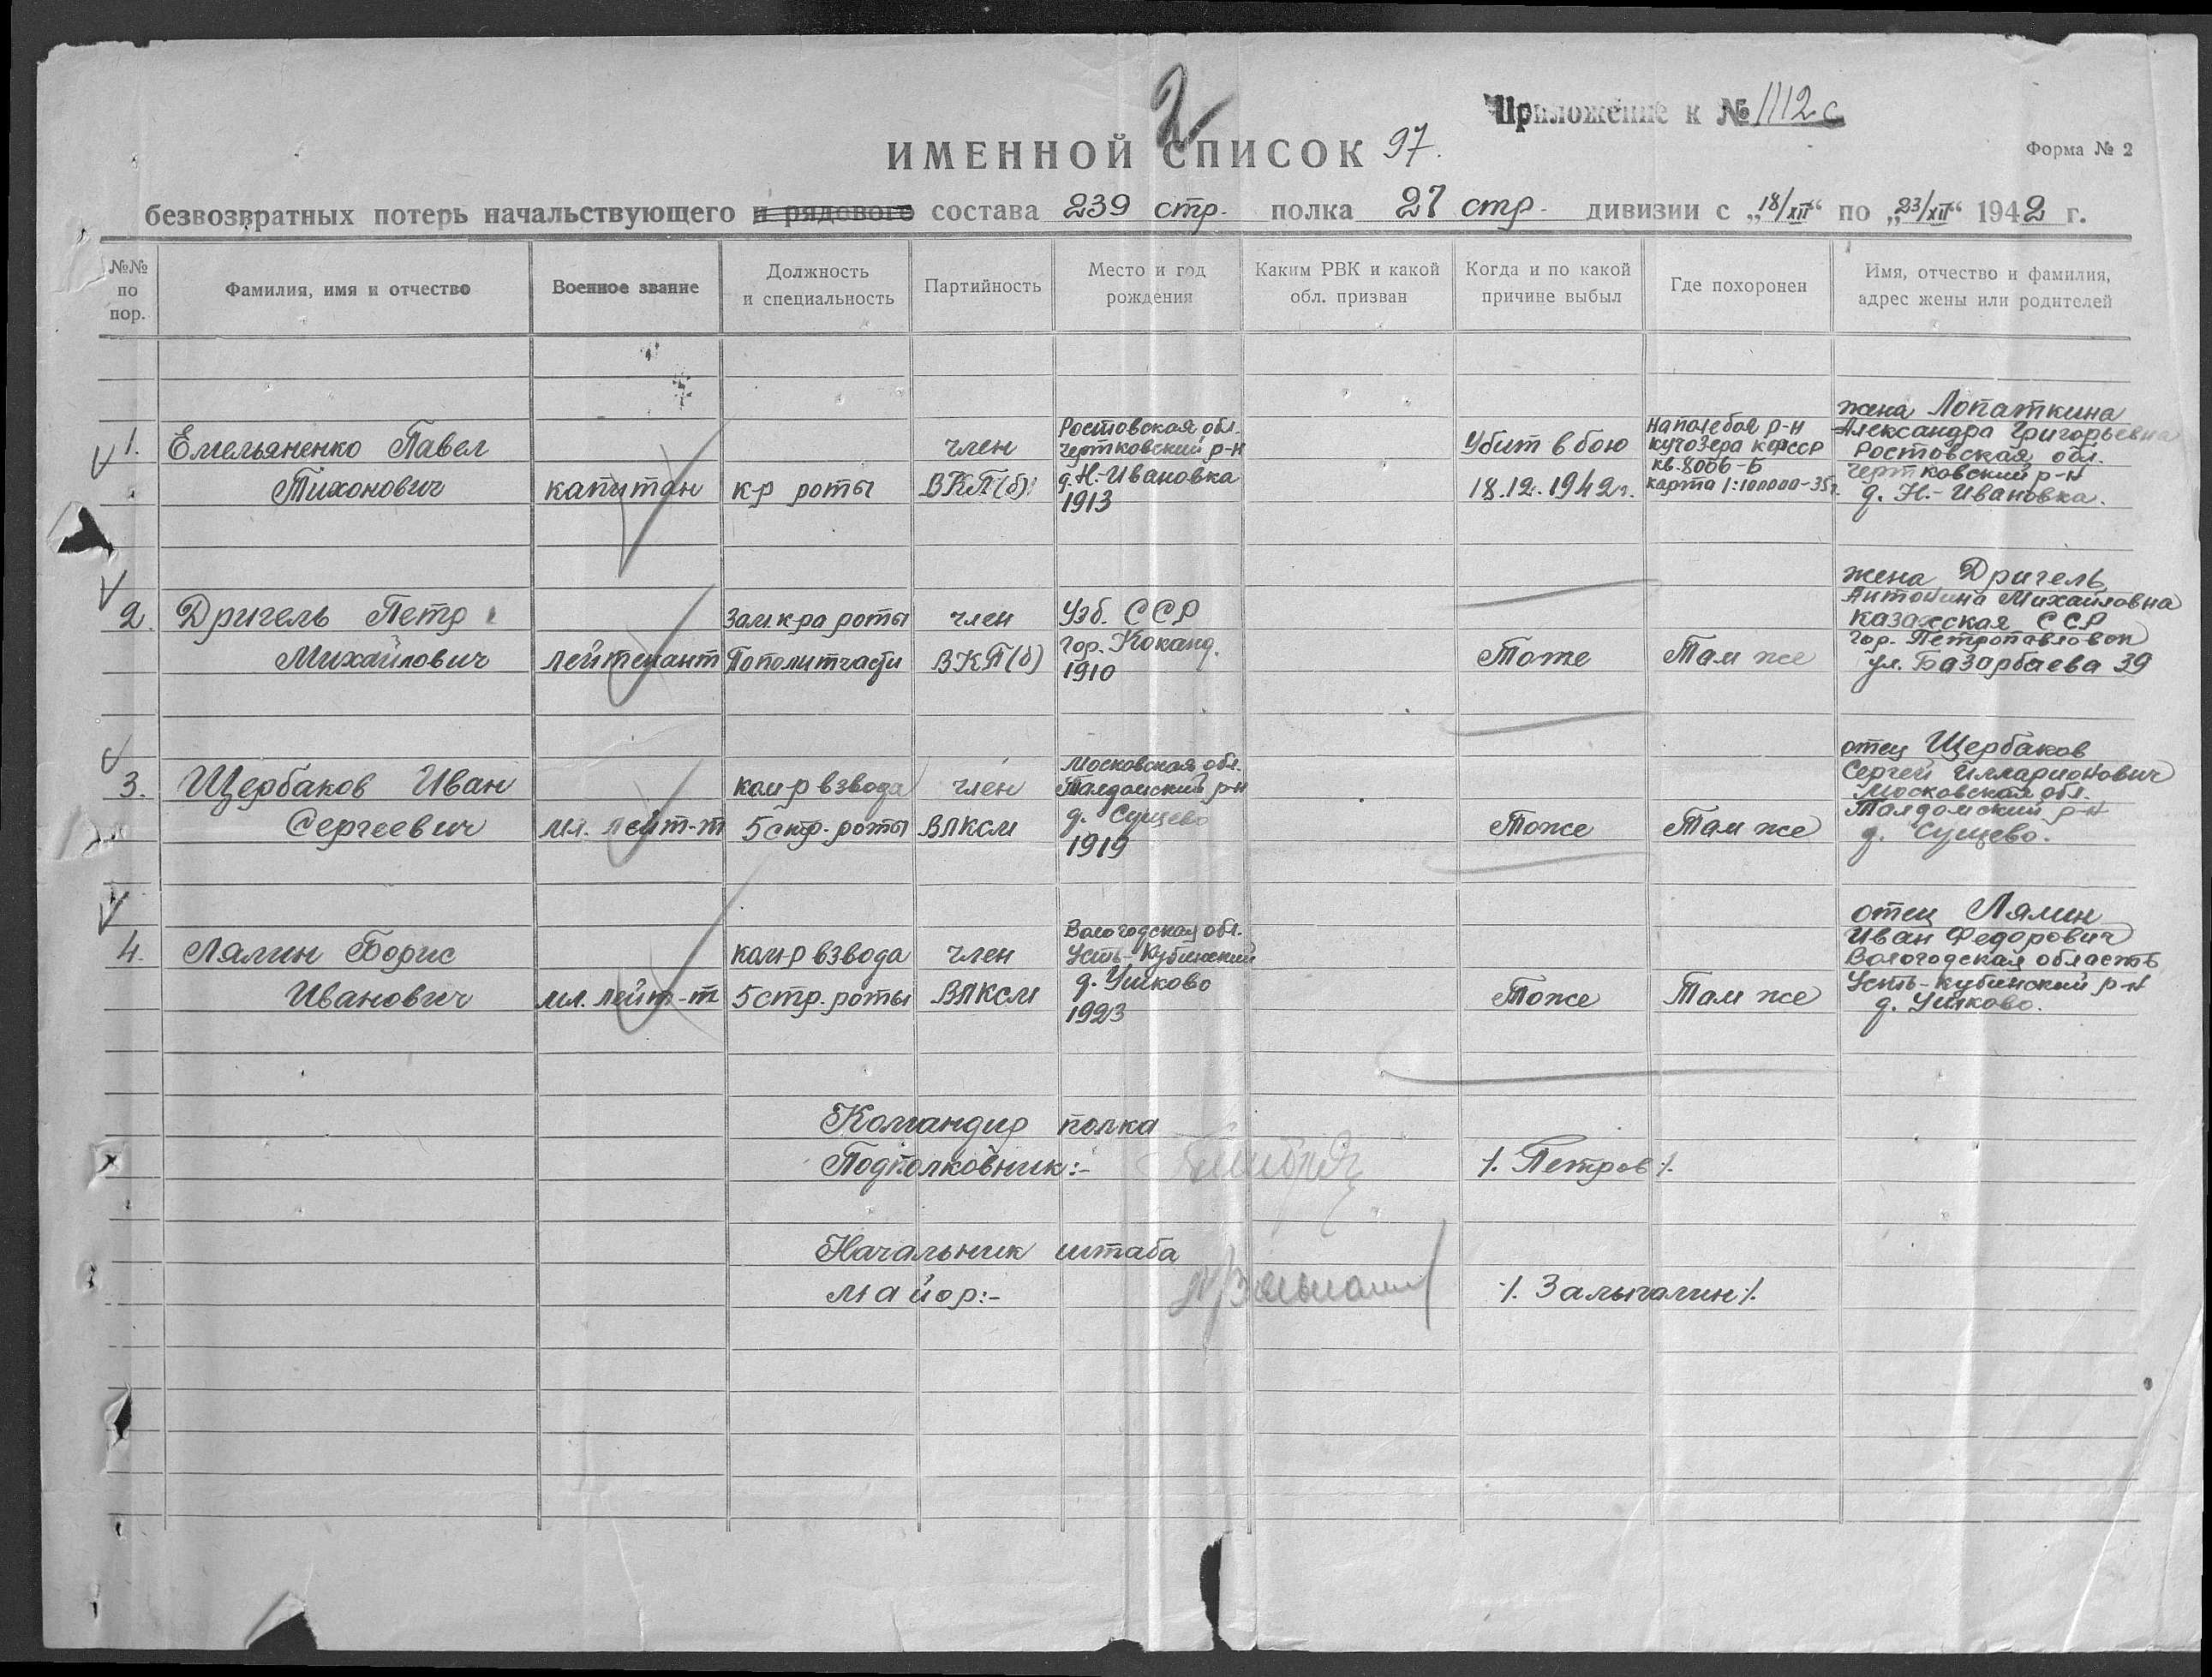 2
Приложение к № 1112с
ИМЕННОЙ СПИСОК 97.
Форма № 2
безвозвратных потерь начальствующего и рядового состава 239 стр. полка 27 стр. дивизии с „18/XII“ по „23/XII“ 1942 г.
№№ по пор.
Фамилия, имя и отчество
Военное звание
Должность и специальность
Партийность
Место и год рождения
Каким РВК и какой обл. призван
Когда и по какой причине выбыл
Где похоронен
Имя, отчество и фамилия, адрес жены или родителей
1.
Емельяненко Павел
Тихонович
капитан
к-р роты
член
ВКП(б)
Ростовская обл.
Чертковский р-н
д. Н.-Ивановка
1913
Убит в бою
18.12.1942г.
На поле боя р-н
Кучозера КФССР
кв. 8006-Б
карта 1:100000-35г.
жена Лопаткина
Александра Григорьевна
Ростовская обл.
Чертковский р-н
д. Н.-Ивановка.
2.
Дригель Петр
Михайлович
лейтенант
Зам. к-ра роты
По политчасти
член
ВКП(б)
Узб. ССР
гор. Коканд.
1910
Тоже
Там же
жена Дригель
Антонина Михайловна
Казахская ССР
гор. Петропавловск
ул. Базарбаева 39
3.
Щербаков Иван
Сергеевич
мл. лейт-т
ком-р взвода
5 стр. роты
член
ВЛКСМ
Московская обл.
Талдомский р-н
д. Сущево
1919
Тоже
Там же
отец Щербаков
Сергей Илларионович
Московская обл.
Талдомский р-н
д. Сущево.
4.
Лялин Борис
Иванович
мл. лейт-т
ком-р взвода
5 стр. роты
член
ВЛКСМ
Вологодская обл.
Усть-Кубинский
д. Ушково
1923
Тоже
Там же
отец Лялин
Иван Федорович
Вологодская область
Усть-Кубинский р-н
д. Ушково.
Командир полка
Подполковник:- /. Петров /.
Начальник штаба
Майор:- /. Залыгалин /.